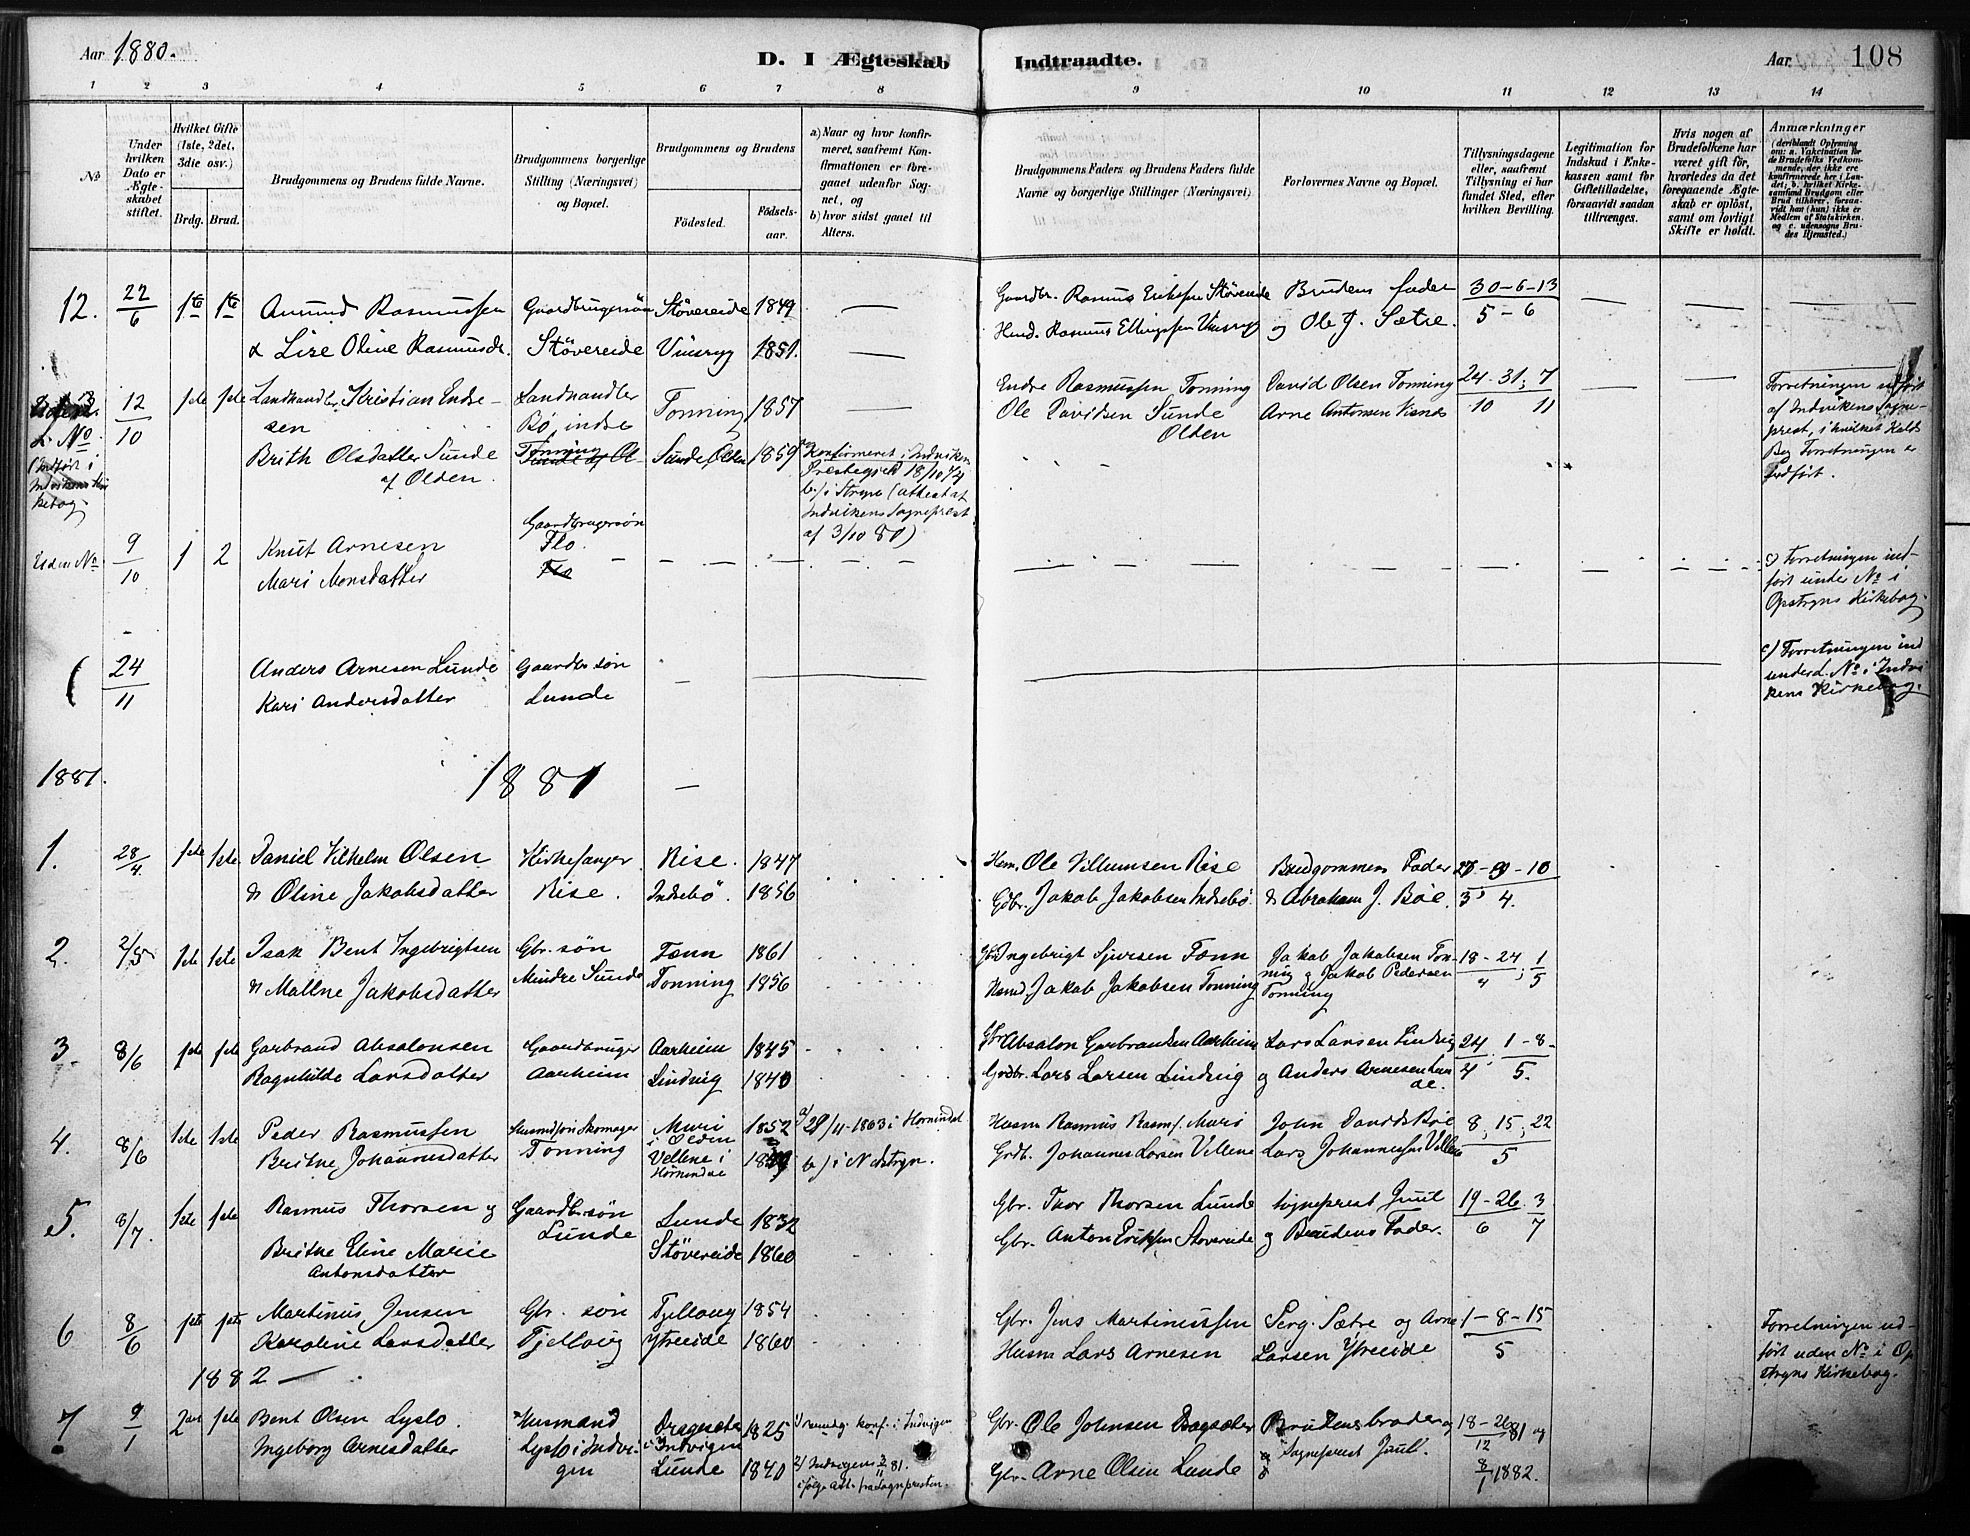 Aar 1880.
D. I Ægteskab Indtraadte.
Aar 108
1 2 3 4 5 6 7 8 9 10 11 12 13 14
No
Under hvilken Dato er Ægteskabet stiftet.
Hvilket Gifte (1ste, 2det, 3die osv.)
Brdg. Brud.
Brudgommens og Brudens fulde Navne.
Brudgommens borgerlige Stilling (Næringsvei) og Bopæl.
Brudgommens og Brudens
Fødested.
Fødselsaar.
a) Naar og hvor konfirmeret, saafremt Konfirmationen er foregaaet udenfor Sognet, og
b) hvor sidst gaaet til Alters.
Brudgommens Faders og Brudens Faders fulde Navne og borgerlige Stillinger (Næringsvei)
Forlovernes Navne og Bopæl.
Tillysningsdagene eller, saafremt Tillysning ei har fundet Sted, efter hvilken Bevilling.
Legitimation for Indskud i Enkekassen samt for Giftetilladelse, forsaavidt saadan tiltrænges.
Hvis nogen af Brudefolkene har været gift før, hvorledes da det foregaaende Ægteskab er opløst, samt om lovligt Skifte er holdt.
Anmærkninger (deriblandt Oplysning om: a. Vakcination for de Brudefolks Vedkommende, der ikke ere konfirmerede her i Landet; b. hvilket Kirkesamfund Brudgom eller Brud tilhører, forsaavidt han (hun) ikke er Medlem af Statskirken, og c. udensogns Brudes Hjemsted.)
12. 22/6 1ste 1ste Amund Rasmussen Gaardbrugersøn Støvereide 1849 — Gaardbr. Rasmus Eriksen Støvereide Brudens fader 30-6-13
& Lise Oline Rasmusdr. Støvereide Vinsryg 1851. — Husd. Rasmus Ellingssen Vinsryg og Ole J. Sætre. 5-6
12/10 1ste 1ste Landhandler Kristian Endresen Landhandler Bø, indre Tonning 1857 — Endre Rasmussen Tonning David Olsen Tonning 24-31; 7
Ole Davidsen Sunde Olden Arne Antonsen Visnes 10 11
Brith Olsdatter Sunde af Olden. Tonning Sunde, Olden 1859 Konfirmeret i Indvikens Præstegjeld 18/10 74
b.) i Stryn (attest af Indvikens Sogneprest af 3/10 80)
(Indført i Indvikens Kirkebog.
Forretningen udført af Indvikens Sogneprest, i hvilket Kalds Bog Forretningen er indført.
Uden No. 9/10 1 2 Knut Arnesen Gaardbrugersøn Flo.
Mari Monsdatter Flo
c) Forretningen indført under No i Opstryns Kirkebog.
24/11 Anders Arnesen Lunde Gaardbr søn
Kari Andersdatter Lunde
c) Forretningen ind under L. No i Indvikens Kirkebog.
1881. 1881 —
1. 28/4. 1ste 1ste Daniel Vilhelm Olsen Kirkesanger Rise. 1847 Hem. Ole Villumsen Rise Brudgommens Fader 10
& Oline Jakobsdatter Rise. Indrebö. 1856 Gdbr. Jakob Jakobsen Indrebö. & Abraham J. Böe. 3 4.
2. 2/5 1ste 1ste Isak Bent Ingebrigtsen Gbr. søn Fænn 1861 Gbr Ingebrigt Sjursen Fænn Jakob Jakobsen Tonning & Jakob Pedersen Tonning 18-24; 1
& Mallne Jakobsdatter Mindre Sunde Tonning 1856 Husmd. Jakob Jakobsen Tonning 4 5
3. 8/6 1ste 1ste Garbrand Absalonsen Gaardbruger Aarheim 1845 Gbr Absalon Garbrandsen Aarheim Lars Larsen Lindvig 24. 1-8-
Ragnhilde Larsdatter Aarheim Lindvig 1840 Grdbr. Lars Larsen Lindvig og Anders Arnesen Lunde. 4 5.
4. 8/6 1ste 1ste Peder Rasmussen Husmdsøn Skomager Muri i Olden 1852 a/ 28/11-1863 i Hornindal Husm Rasmus Rasm. Muri John Davids Böe 8; 15; 22
Britne Johannesdatter Tonning Vellene i Hornindal b) i Nedstryn. Grdb. Johannes Larsen Vellene Lars Johannessen Vellene 5
5. 8/7. 1ste 1ste Rasmus Thorsen og Gaardbr søn Lunde 1832 Gbr. Thor Thorsen Lunde Sogneprest Juul 19-26. 3
Britne Eline Marie Antonsdatter Lunde Støvereide 1860 Gbr. Anton Eriksen Støvereide og Brudens Fader. 6 7
6 8/6 1ste 1ste Martinus Jensen Gbr. søn Tjellaug 1854 Gbr. Jens Martinussen Serg. Sætre og Arne 1-8-15
Karoline Larsdatter Tjellaug Ytreeide 1860 Husm Lars Arnesen Larsen Ytreeide 5
Forretningen udført uden No i Opstryns Kirkebog.
1882 —
7. 9/1 2det 1ste Bent Olsen Lyslo. Husmand Dragesæt i Indvigen 1825 rimelig konf. i Indvigen Gbr. Ole Johnsen Dragesæter Brudens broder og 18-26/12 81 og
Ingeborg Arnesdatter Lyslo i Indvigen Lunde 1840 2/ Indvigens 3/11 81. ifølge Att. fra Sognepresten. Gbr. Arne Olsen Lunde Sogneprest Juul. 8/1 1882.